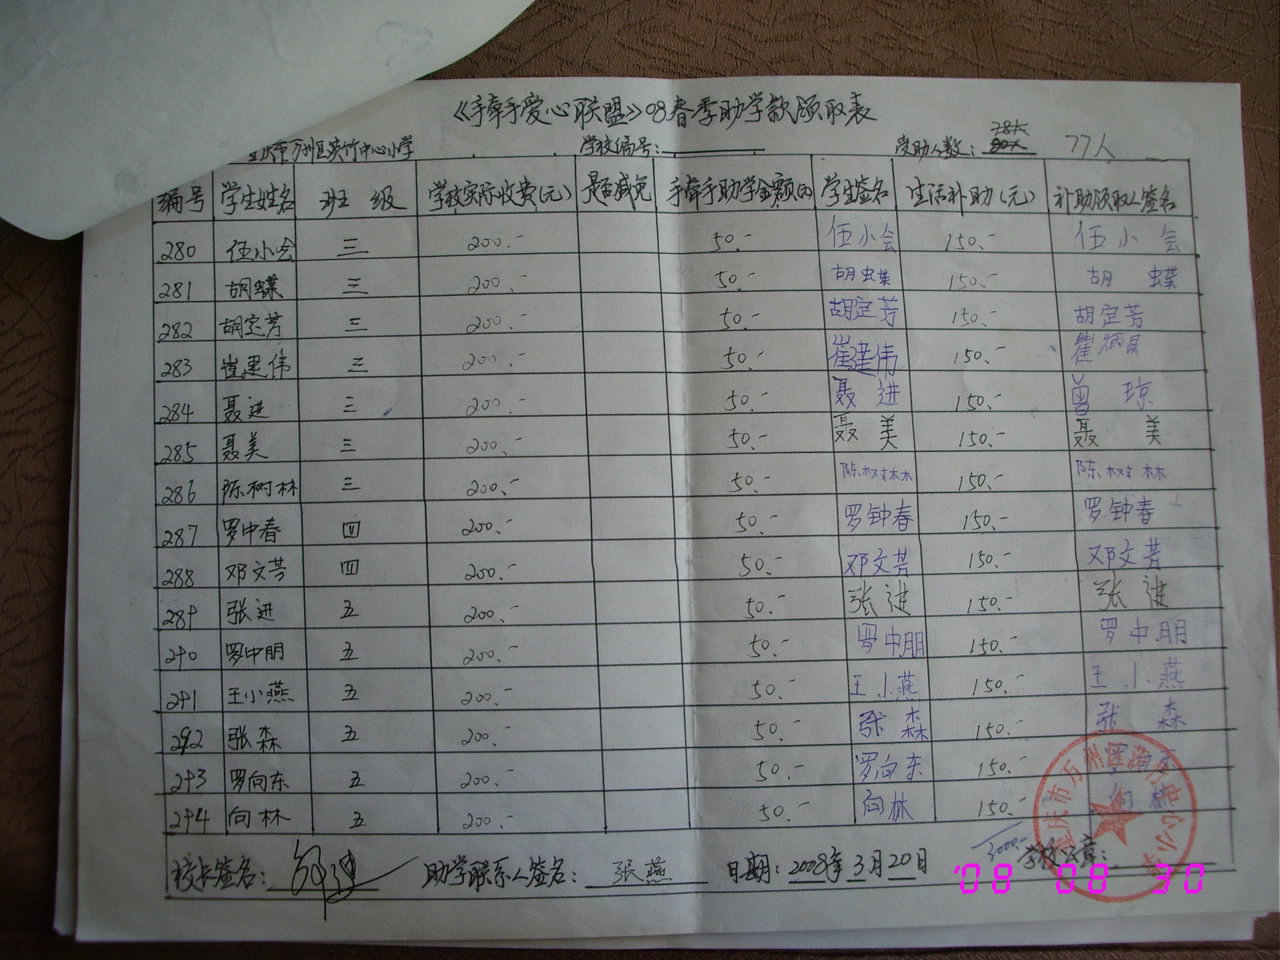 《手牵手爱心联盟》08春季助学款领取表
庆市万州区英竹中心小学 学校编号: 受助人数: 77人
编号 学生姓名 班 级 学校实际收费(元) 是否减免 手牵手助学金额(元) 学生签名 生活补助(元) 补助领取人签名
280 伍小会 三 200.- 50.- 伍小会 150.- 伍小会
281 胡蝶 三 200.- 50.- 胡蝶 150.- 胡蝶
282 胡定芳 三 200.- 50.- 胡定芳 150.- 胡定芳
283 崔建伟 三 200.- 50.- 崔建伟 150.- 崔炳贝
284 聂进 三 200.- 50.- 聂进 150.- 曾琼
285 聂美 三 200.- 50.- 聂美 150.- 聂美
286 陈树林 三 200.- 50.- 陈树林 150.- 陈树林
287 罗中春 四 200.- 50.- 罗钟春 150.- 罗钟春
288 邓文芳 四 200.- 50.- 邓文芳 150.- 邓文芳
289 张进 五 200.- 50.- 张进 150.- 张进
290 罗中朋 五 200.- 50.- 罗中朋 150.- 罗中朋
291 王小燕 五 200.- 50.- 王小燕 150.- 王小燕
292 张森 五 200.- 50.- 张森 150.- 张森
293 罗向东 五 200.- 50.- 罗向东 150.-
294 向林 五 200.- 50.- 向林 150.- 向林
3000.-
校长签名: 助学联系人签名: 张燕 日期: 2008年3月20日 学校公章:
重庆市万州区 中心小学
'08 08 30